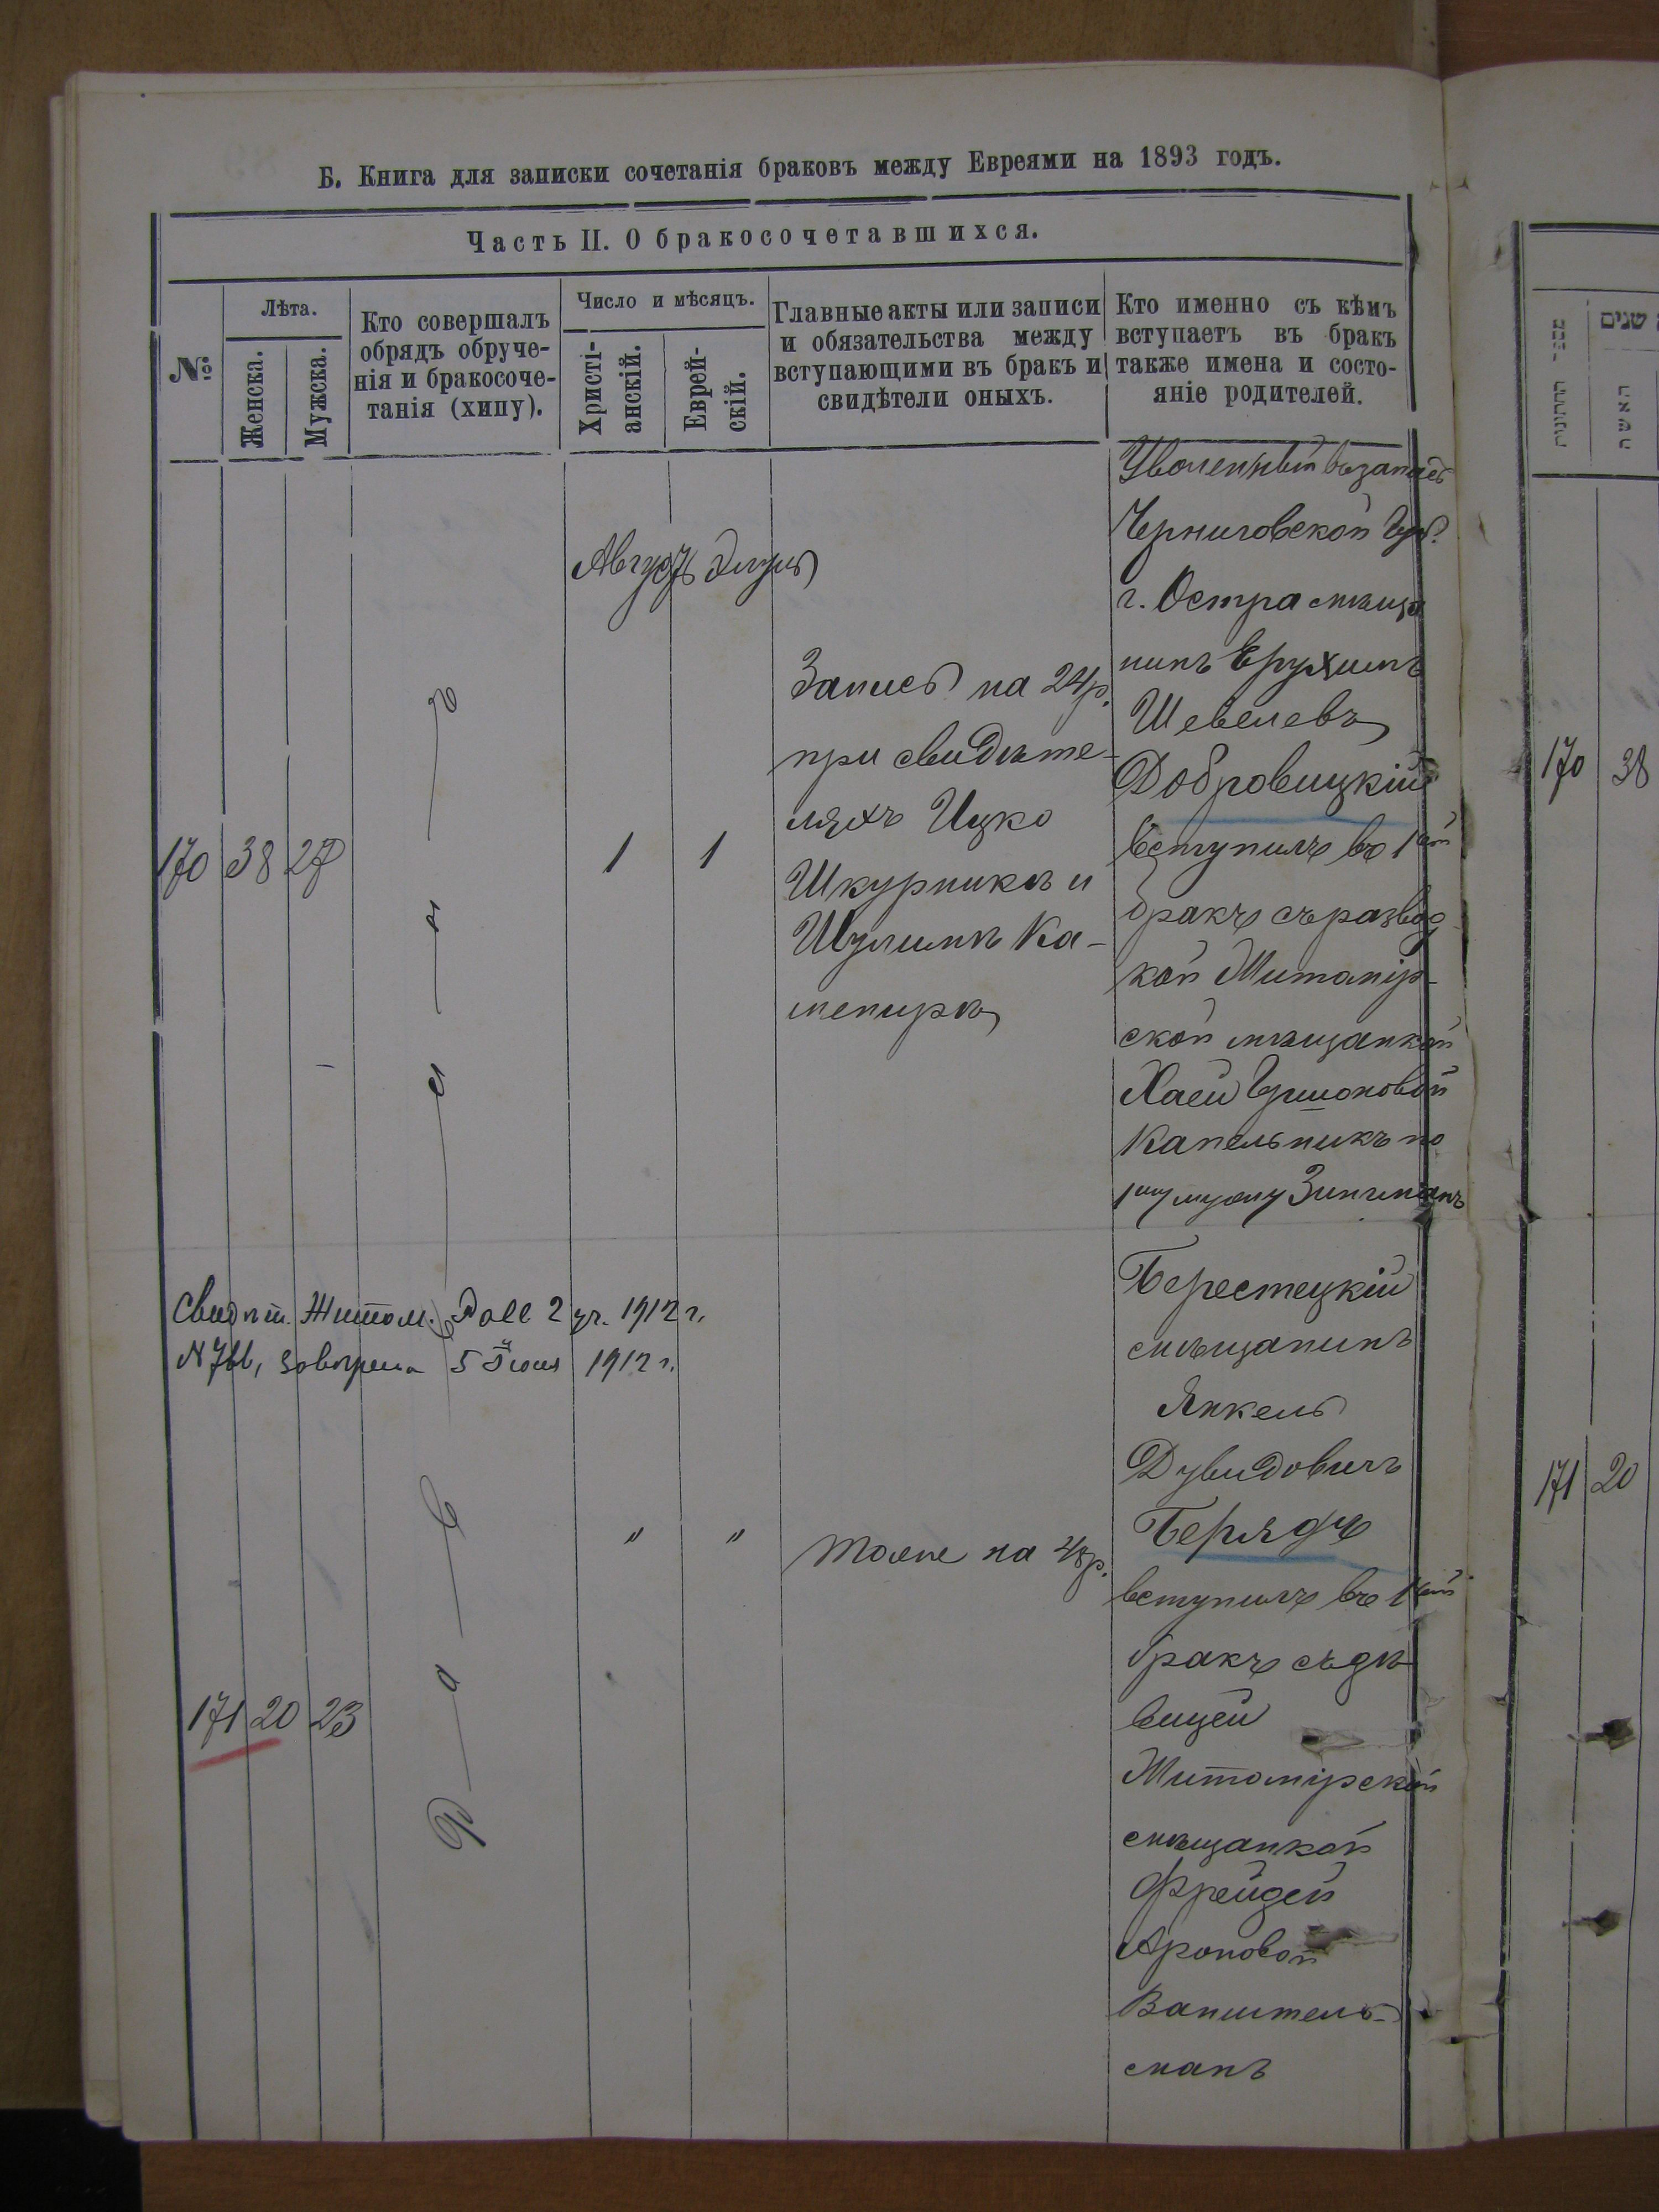 Б. Книга для записки сочетанія браковъ между Евреями на 1893 годъ.
Часть II. О бракосочетавшихся.
№
Лѣта.
Женска.
Мужска.
Кто совершалъ
обрядъ обруче-
нія и бракосоче-
танія (хипу).
Число и мѣсяцъ.
Христі-
анскій.
Еврей-
скій.
Главные акты или записи
и обязательства между
вступающими въ бракъ и
свидѣтели оныхъ.
Кто именно съ кѣмъ
вступаетъ въ бракъ
также имена и состо-
яніе родителей.
Августъ Элуль
170 38 27
1 1
Запись на 24р.
при свидѣте-
ляхъ Ицко
Шкурникъ и
Шулимъ Ка-
мениръ
Уволенный въ запасъ
Черниговской Губ.
г. Остра мѣща
нинъ Ерухимъ
Шевелевъ
Добровицкій
вступилъ въ 1ый
бракъ съ развод
кой Житомір-
ской мѣщанкой
Хаей Гершоновой
Капельникъ по
1му мужу Зингманъ
Свидѣт. Житом. 2 уч. 1912 г.
5 Іюня 1912 г.
171 20 23
" "
Тоже на 48р.
Берестецкій
мѣщанинъ
Янкель
Дувидовичъ
Берядъ
вступилъ въ 1ый
бракъ съ дѣ
вицей
Житомірской
мѣщанкой
Фрейдей
Ароновой
Ванштель-
манъ
Р а б
שנים
האשה
170 38
171 20